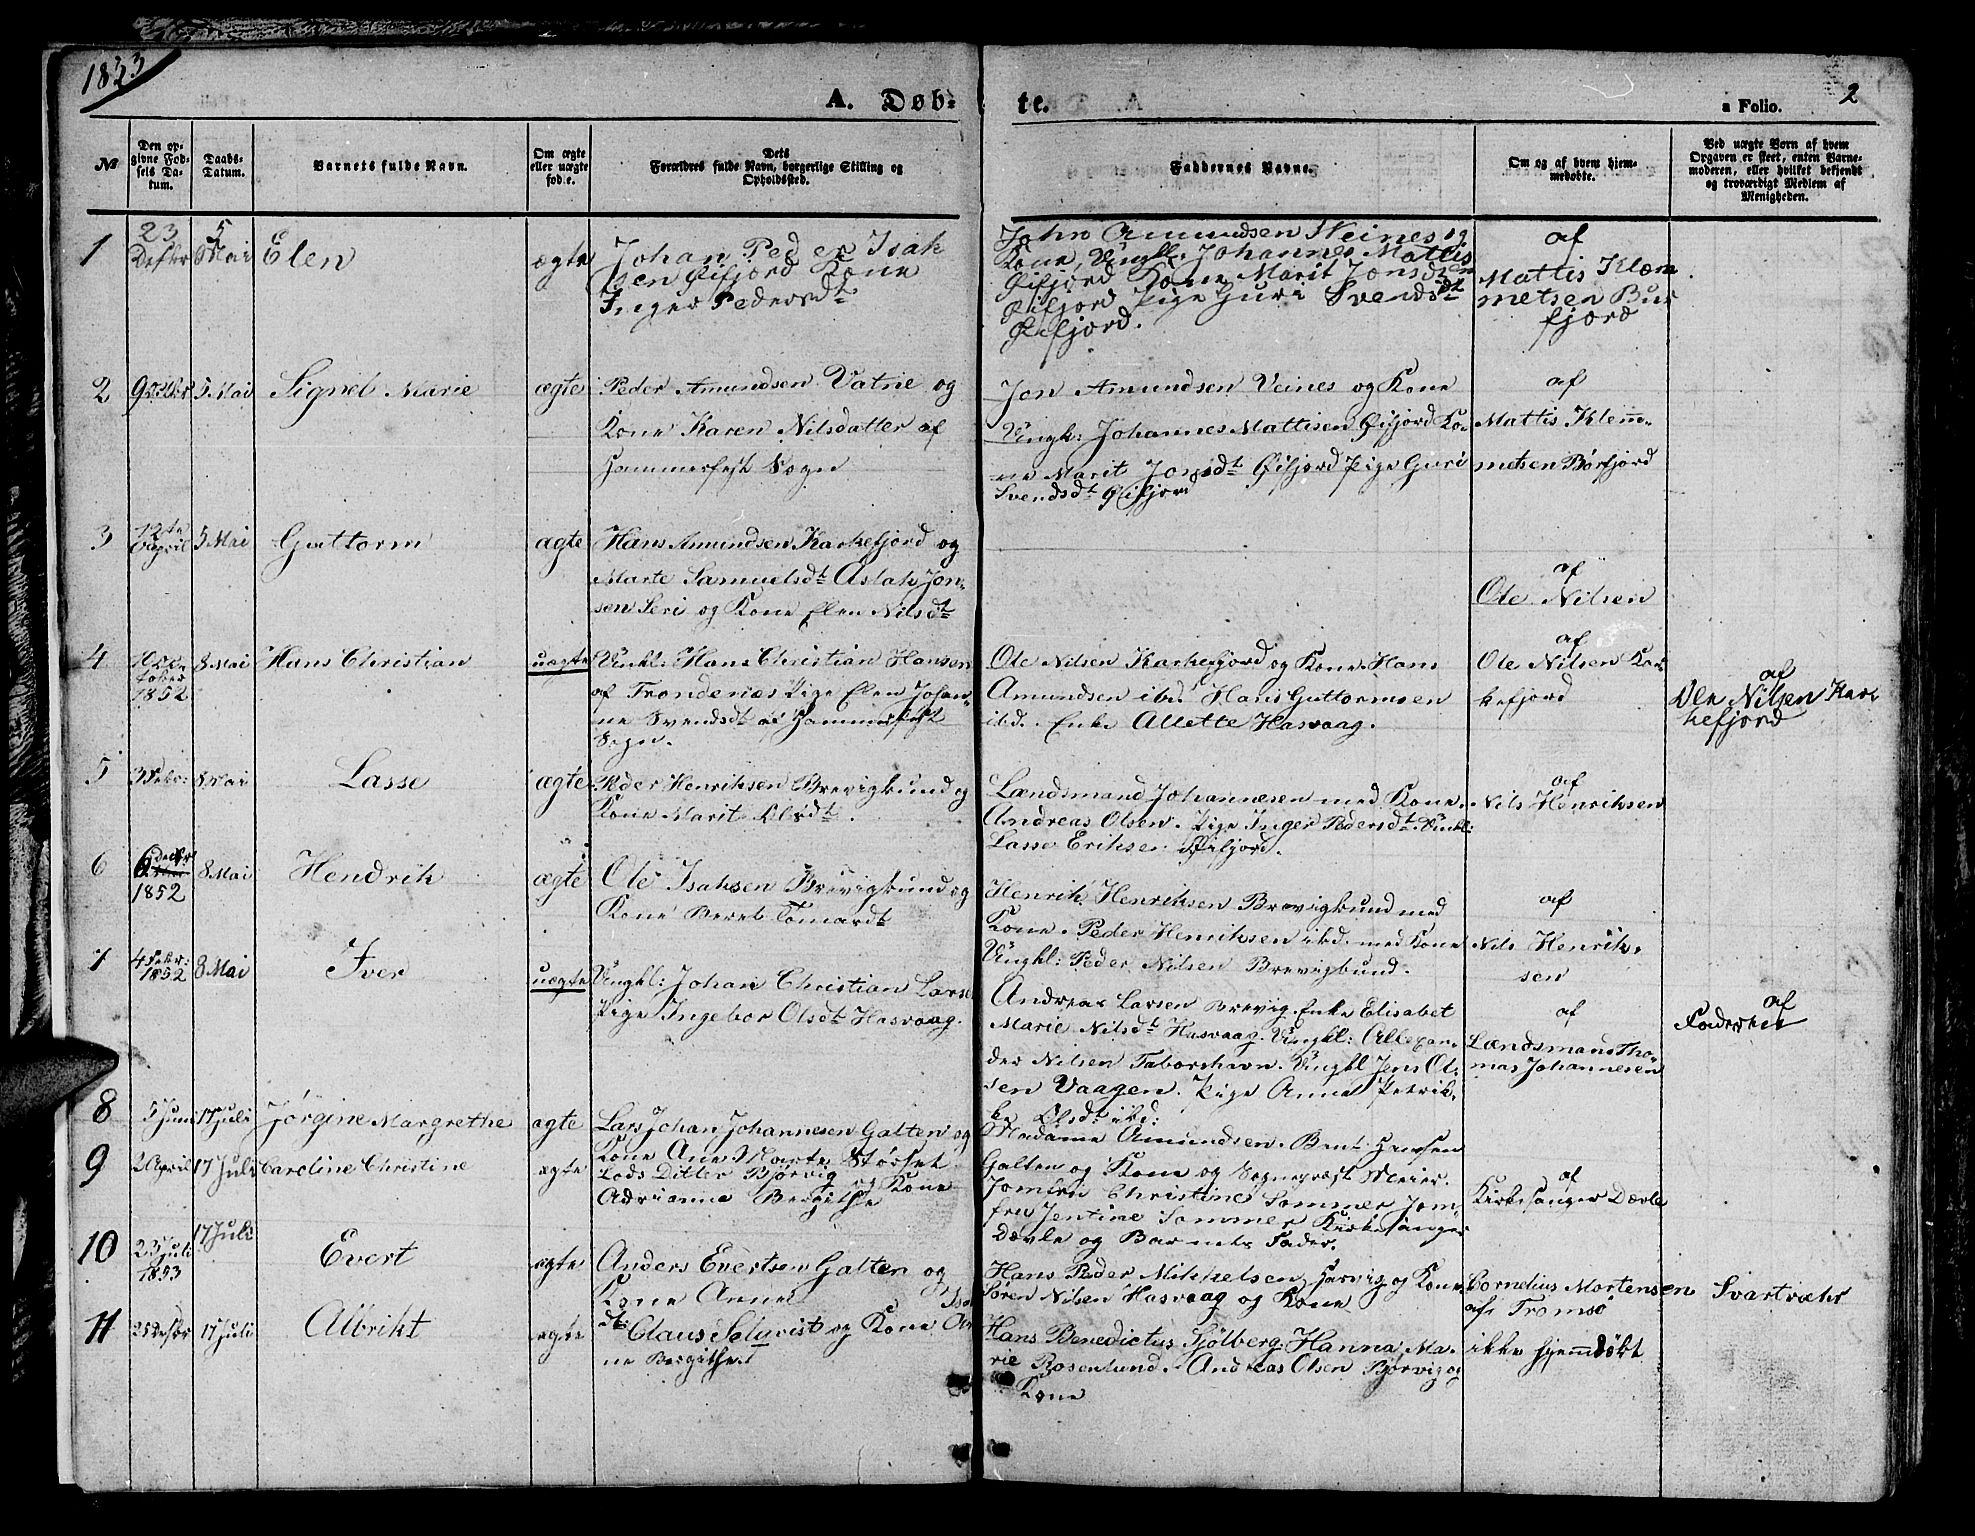 1853
A. Døb-
te.
a Folio.
2
№
Den op-
givne Fød-
sels Da-
tum.
Daabs-
Datum.
Barnets fulde Navn.
Om ægte
eller uægte
fød.e.
Dets
Forældres fulde Navn, borgerlige Stilling og
Opholdssted.
Faddernes Navne.
Om og af hvem hjem-
medøbte.
Ved uægte Børn af hvem
Opgaven er skeet, enten Barne-
moderen, eller hvilket bekjendt
og troværdigt Medlem af
Menigheden.
1
23
Desbr
5
Mai
Elen
ægte
Johan Peder Isak
sen Øifjord Kone
Inger Pedersdt
John Amundsen Veines og
Kone, Ungkl: Johannes Mattis
Øifjord Kone Marit Jonsdt
Øifjord Pige Guri Svendsdt
Øifjord.
af
Mattis Klem
metsen Bur
fjord
2
5 Mai
Signel Marie
ægte
Peder Amundsen Vatne og
Kone Karen Nilsdatter af
Hammerfest Sogn
Jon Amundsen Veines og Kone
Ungk: Johannes Mattisen Øifjord Ko-
ne Marit Jonsdt Øifjord Pige Guri
Svendsdt Øifjord
af
Mattis Klem-
metsen Börfjord
3
12te
April
5 Mai
Guttorm
ægte
Hans Amundsen Karkefjord og
Marte Samuelsdt Aslak Jon-
sen Seri og Kone Elen Nilsdt
af
Ole Nilsen
4
tober
1852
8 Mai
Hans Christian
uægte
Unkl: Hans Christian Hansen
af Trondenæs Pige Elen Johan-
ne Svendsdt af Hammerfest
Sogn.
Ole Nilsen Karkefjord og Kone. Hans
Amundsen ibd. Hans Guttormsen
ibd. Enke Allette Hasvaag.
af
Ole Nilsen Kar
kefjord
af
Ole Nilsen Kar
kefjord
5
3 Febr:
8 Mai
Lasse
ægte
Peder Henriksen Brevigbund og
Kone Marit Olsdt.
Lændsmand Johannesen med Kone.
Andreas Olsen. Pige Inger Pedersdt. Unkl:
Lasse Eriksen Øifjord.
af
Nils Henriksen
6
6 decbr
1852
8 Mai
Hendrik
ægte
Ole Isaksen Brevigbund og
Kone Beret Tomasdt
Henrik Henriksen Brevigbund med
Kone. Peder Henriksen ibd. med Kone
Ungkl: Peder Nilsen Brevigbund.
af
Nils Henrik-
sen
7
4 Febr:
1852
8 Mai
Iver
uægte
Ungkl: Johan Christian Larse
Pige Ingebor Olsdt Hasvaag.
Andreas Larsen Brevig. Enke Elisabet
Marie Nilsdt Hasvaag. Ungkl: Allexan-
der Nilsen Taborshavn. Ungkl Jens Ol-
sen Vaagen. Pige Anne Petrik-
ke Olsdt ibd:
af
Lændsmand Tho-
mas Johannesen
af
Faderen
8
5 Juni
17 Juli
Jørgine Margrethe
ægte
Lars Johan Johannesen Galten og
Kone Ane Marte Størset
9
2 April
17 Juli
Caroline Christine
ægte
Lods Ditler Bjørvig
og Kone
Adrianna Bergithe
Madame Amundsen. Bent Hansen
Galten og Kone og Sogneprest Meier.
Jomfru Christine Sommer Jom-
fru Jentine Sommer Kirkesanger
Dævle og Barnets Fader.
af
Kirkesanger Dævle
10
23 Juli
1853
17 Juli
Evert
ægte
Anders Evertsen Galten og
Kone Anne
Hans Peder Mikkelsen Harvig og Kone
Søren Nilsen Hasvaag og Kone
Cornelius Mortensen Svartvæhr
af Tromsö
11
17 Juli
Albrikt
ægte
Isa
dt. Claus Solqvist og Kone Ol
ne Bergithe.
Hans Benedictus Fjølberg. Hanna Ma-
rie Rosenlund. Andreas Olsen Bjørvig og
Kone
ikke hjemdökt